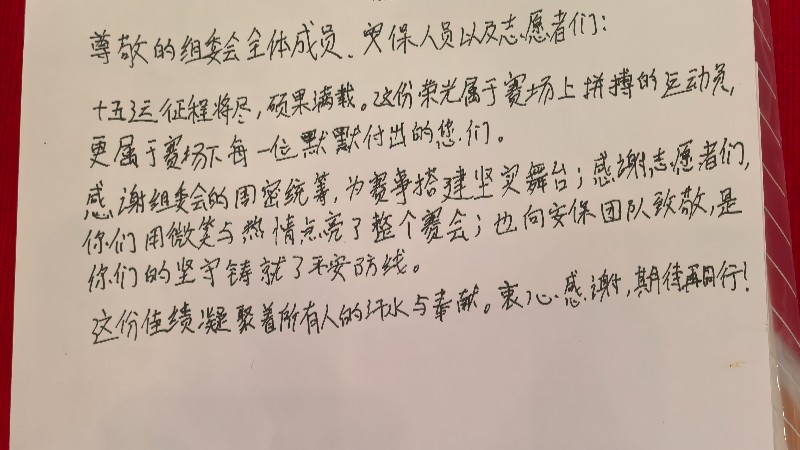 尊敬的组委会全体成员、安保人员以及志愿者们:
十五运征程将尽,硕果满载。这份荣光属于赛场上拼搏的运动员,
更属于赛场下每一位默默付出的您们。
感谢组委会的周密统筹,为赛事搭建坚实舞台;感谢志愿者们,
你们用微笑与热情点亮了整个赛会;也向安保团队致敬,是
你们的坚守铸就了平安防线。
这份佳绩凝聚着所有人的汗水与奉献。衷心感谢,期待再同行!